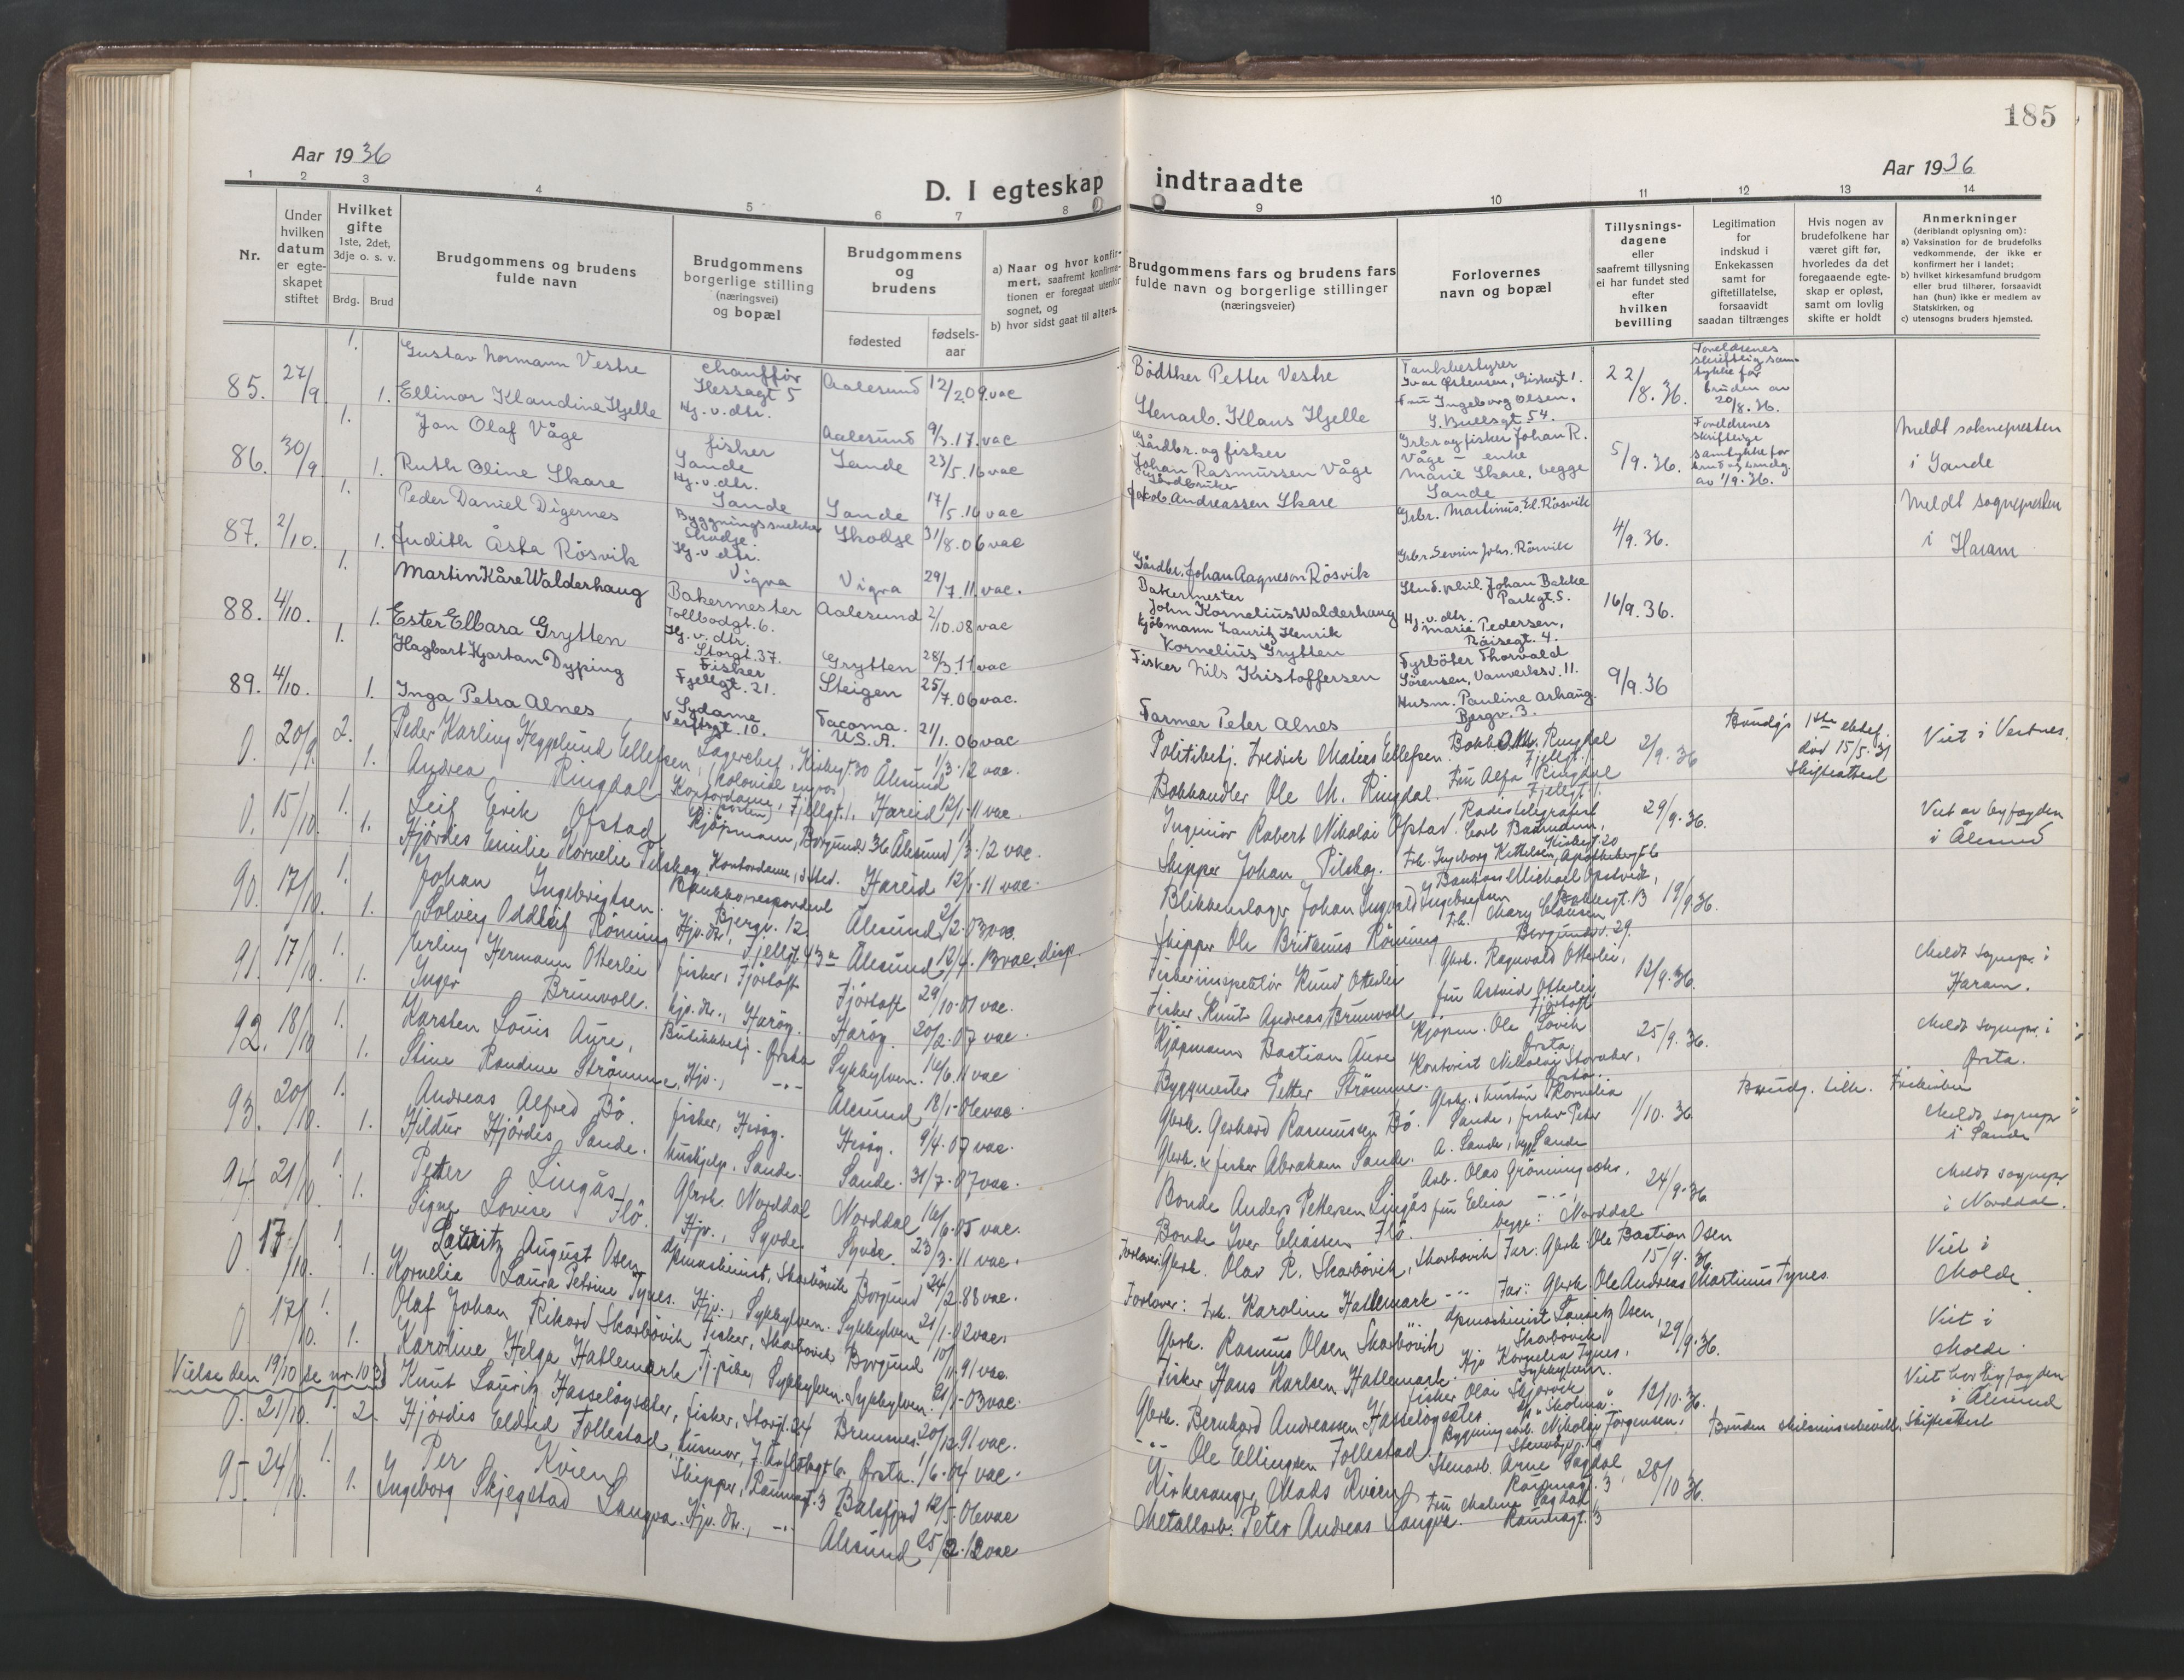 185
Aar 1936
Aar 1936
D. I egteskap indtraadte
1 2 3 4 5 6 7 8 9 10 11 12 13 14
Nr.
Under
hvilken
datum
er egte-
skapet
stiftet
Hvilket
gifte
1ste, 2det,
3dje o. s. v.
Brdg. Brud
Brudgommens og brudens
fulde navn
Brudgommens
borgerlige stilling
(næringsvei)
og bopæl
Brudgommens
og
brudens
fødested
fødsels-
aar
a) Naar og hvor konfir-
mert, saafremt konfirma-
tionen er foregaat utenfor
sognet, og
b) hvor sidst gaat til alters.
Brudgommens fars og brudens fars
fulde navn og borgerlige stillinger
(næringsveier)
Forlovernes
navn og bopæl
Tillysnings-
dagene
eller
saafremt tillysning
ei har fundet sted
efter
hvilken
bevilling
Legitimation
for
indskud i
Enkekassen
samt for
giftetillatelse,
forsaavidt
saadan tiltrænges
Hvis nogen av
brudefolkene har
været gift før,
hvorledes da det
foregaaende egte-
skap er opløst,
samt om lovlig
skifte er holdt
Anmerkninger
(deriblandt oplysning om):
a) Vaksination for de brudefolks
vedkommende, der ikke er
konfirmert her i landet;
b) hvilket kirkesamfund brudgom
eller brud tilhører, forsaavidt
han (hun) ikke er medlem av
Statskirken, og
c) utensogns bruders hjemsted.
85. 27/9 1. Gustav Normann Vestre chauffør Hessagt 5 Aalesund 12/2.09. vac Bödtker Petter Vestre Tankbestyrer Ivar Østensen, 22/8.36. Foreldrenes skriftlig samtykke for bruden av 20/8.36.
1. Ellinor Klaudine Hjelle Hj. v. dtr. Aalesund 9/3.17. vac Stenarb. Klaus Hjelle Fru Ingeborg Olsen, J. Buellsgt. 54.
86. 30/9 1. Jon Olaf Våge fisker Sande Sande 23/5.16 vac Gårdbr. og fisker Johan Rasmussen Våge Grbr og fisker Johan R. Våge - enke 5/9.36. Foreldrenes skriftlige samtykke for brud og brudg. av 1/9.36. Meldt soknepresten i Sande
1. Ruth Oline Skare Hj. v. dtr. Sande Sande 17/5.16 vac Gårdbruker Jakob Andreassen Skare Marie Skare, begge Sande
87. 2/10. 1. Peder Daniel Digernes Byggningssnekker Skodje Skodje 31/8.06 vac Grbr. Martinus El. Rösvik 4/9.36. Meldt sogneprsten i Haram
1. Judith Åsta Rösvik Hj. v dtr. Vigra Vigra 29/7.11. vac. Gårdbr. Johan Aagneson Rösvik Grbr. Sevrin Johs. Rösvik
88. 4/10. 1. Martin Kåre Walderhaug Bakermester Tollbodgt. 6. Aalesund 2/10.08 vac Bakermester John Kornelius Walderhaug Stud. phil. Johan Bakke Parkgt. 5. 16/9.36.
1. Ester Elbara Grytten Hj. v. dtr. Storgt. 37. Grytten 28/3.11 vac Kjöbmann Lauritz Henrik Kornelius Grytten Hj. v. dtr. Marie Pedersen, Röisegt. 4.
89. 4/10. 1. Hagbart Kjartan Dyping Fisker Fjellgt. 21. Steigen 25/7.06 vac. Fisker Nils Kristoffersen Fyrböter Thorvald Sörensen, Vanverksv. 11. 9/9.36
1. Inga Petra Alnes Sydame Verftsgt. 10. Tacoma. U.S.A. 21/1.06 vac Farmer Peter Alnes Husm. Pauline Arhaug. Borgv. 3.
0. 20/9. 2. Peder Karling Heggelund Ellefsen, Lagerchef, Kirkegt. 30 (kolonial engros) Ålesund 1/3.12 vac. Politibetj. Fredrik Matias Ellefsen. Bokh. O. M. Ringdal Fjellgt. 1. 2/9.36 Brudg's 1ste ektef. död 15/5.31 Skifteattest Viet i Vestnes.
1. Andrea Ringdal Kontordame, Fjellgt. 1. Hareid 12/1-11 vac. Bokhandler Ole M. Ringdal. Fru Alfa Ringdal Fjellgt. 1.
0. 15/10. 1. Leif Erik Ofstad Kjöpmann, Borgundv. 36 Ålesund 1/3.12 vac. Ingeniör Robert Nikolai Ofstad. Radiotelegrafist Carl Kirkegt. 20 29/9.36. Viet av byfogden i Ålesund
1. Hjördis Emilie Kornelie Pilskog Kontordame, i sted. Hareid 12/1-11 vac. Skipper Johan Pilskog. Frk. Ingeborg Kittelsen, Apothekergt. 6
90. 17/10. 1. Johan Ingebrigtsen. Bankkorrespondent Bjergv. 12 Ålesund 2/2.03 vac. Blikkenslager Johan Ingvald Ingebrigtsen Bankass Michael Opstvedt, Bakkegt. 13 19/9.36.
1. Solveig Oddlaug Röning Hjv. dtr., Fjellgt. 43a Ålesund 12/4.13 vac. disp. Skipper Ole Britanus Röning Frk. Mary Clausen Borgundv. 29.
91. 17/10. 1. Erling Hermann Otterlei fisker, Fjörtoft Fjörtoft 29/10.01 vac. Fiskeriinspektör Knud Otterlei Gbrk. Ragnvald Otterlei, 12/9.36. Meldt sognepr. i Haram.
1. Inger Brunvoll. hjv. dtr., Haröy. Haröy. 20/2.07 vac. Fisker Knut Andreas Brunvoll fru Astrid Otterlei Fjörtoft
92. 18/10 1. Karsten Louis Aure, Butikkbetj. Ørsta Sykkylven. 16/6.11 vac Kjöpmann Bastian Aure Kjöpm. Ole Søvik Ørsta, 25/9.36. Meldt sognepr. i Ørsta.
1. Stine Randine Strömme, Hjv., -.- Ålesund 18/1-06 vac. Byggmester Petter Strömme. Kontorist Nikolai Ørsta.
93. 20/10. 1. Andreas Alfred Bö. fisker, Heröy. Heröy. 9/4.07 vac. Gbrk. Gerhard Rasmussen Bö. Gbrk. i Sande, fisker Peter 1/10.36 Brudg. tilh. Frikirken Meldt sognepr i Sande
1. Hildur Hjördis Sande. hushjelp, Sande. Sande. 31/7.07 vac. Gbrk. & fisker Abraham Sande. A. Sande, begge Sande
94. 21/10. 1. Petter Lingås, Gbrk. Norddal Norddal 16/6.05 vac. Bonde Anders Pettersen Lingås Arb. Olas Gröningsæter, 24/9.36 Meldt sognepr. i Norddal.
1. Signe Lovise Flö. Hjv., Syvde Syvde. 23/3.11 vac. Bonde Iver Eliassen Flö. fru Elia -.- begge: Norddal
0. 17/10. 1. Lauritz August Osen dpmaskinist, Skarbövik Borgund 24/2.88 vac. Forlover: Gbrk. Olav R. Skarbövik, Skarbövik Far: Gbrk. Ole Bastian Osen 15/9.36. Viet i Molde
1. Kornelia Laura Petrine Tynes. Hjv., Sykkylven. Sykkylven 21/1.92 vac. Forlover: Frk. Karoline Hatlemark -.- Far: Gbrk. Ole Andreas Martinus Tynes.
0. 17/10. 1. Olaf Johan Rikard Skarbövik Fisker, Skarbövik Borgund 10/11.91 vac. Gbrk. Rasmus Olsen Skarbövik dpmaskinist Lauritz Osen, Skarbövik 29/9.36. Viet i Molde.
1. Karoline Helga Hatlemark Tj. pike, Sykkylven. Sykkylven. 21/1-03 vac. Fisker Hans Karlsen Hatlemark. Hjv Kornelia Tynes, Sykkylven.
Vielse den 19/10 se nr. 103
0. 21/10. 1. Knut Lauritz Hasseløysæter, fisker, Storgt. 24 Bremsnes. 20/12.91 vac. Gbrk. Bernhard Andreassen Hasselöysæter fisker Olai Skjarvik 12/10.36. Viet hos byfogden i Ålesund
2. Hjördis Eldrid Follestad, Husmor, Ørsta. 1/6.04 vac. -.- Ole Ellingsen Follestad. Bygningsarb. Nikolai Jørgensen, Bruden skilsmissebevill. Skifteattest
95. 24/10. 1. Per Kvien Skipper, Rönnebgt. 3 Balsfjord 12/5.06 vac Kirkesanger Mads Kvien Stenarb. Arne Sagdal 3 28/10 36.
1. Ingeborg Skjegstad Langva. Hjv. dtr., -.- Ålesund 25/2.12 vac Metallarb. Peter Andreas Langva. Fru Malene Sagdal 3